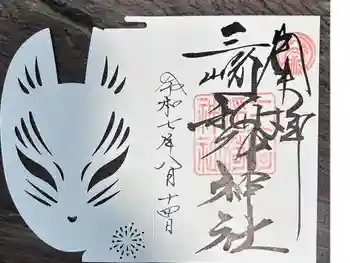 奉拝
三崎稲荷神社
令和七年八月十四日